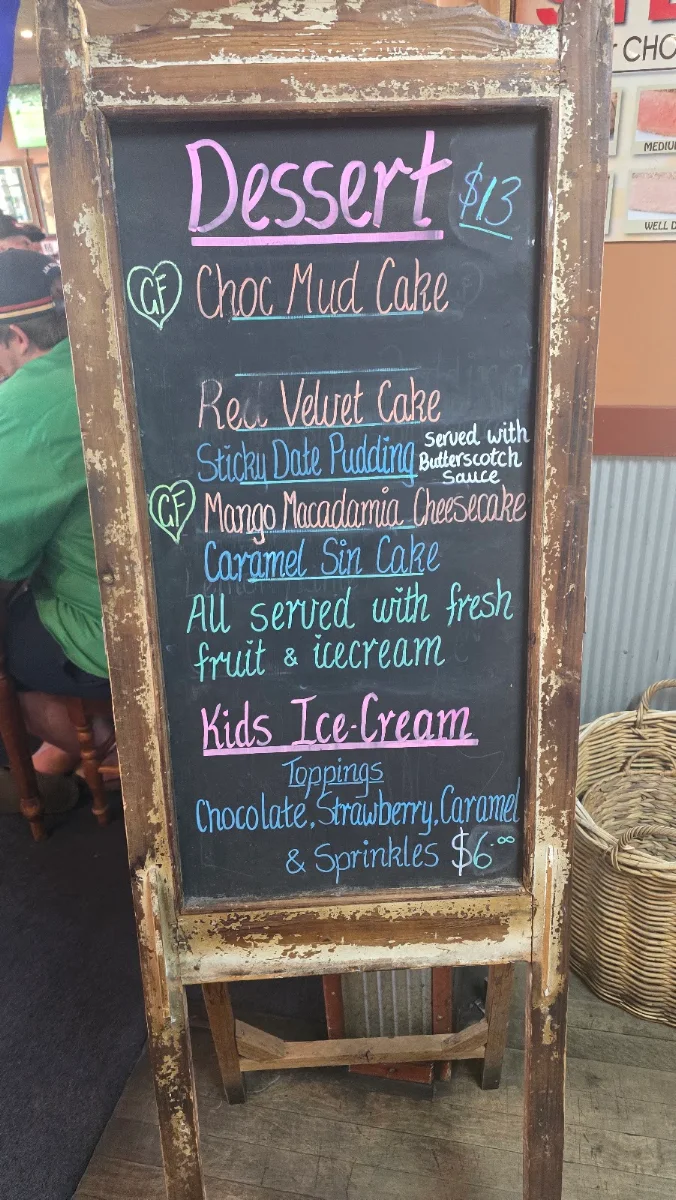 Dessert $13
GF Choc Mud Cake
Red Velvet Cake
Sticky Date Pudding Served with
Butterscotch
Sauce
GF Mango Macadamia Cheesecake
Caramel Sin Cake
All served with fresh
fruit & icecream
Kids Ice-Cream
Toppings
Chocolate, Strawberry, Caramel
& Sprinkles $6.00
CHO
MEDIU
WELL D